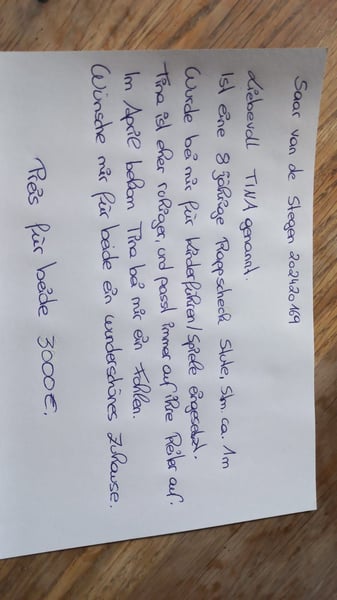 Saar van de Stegen 202420169
Liebevoll TINA genannt.
Ist eine 8 jährige Rappscheck Stute, Stm ca. 1m
Wurde bei mir für Kinderführen/Spiele eingesetzt.
Tina ist eher ruhiger, und passt immer auf ihre Reiter auf.
Im April bekam Tina bei mir ein Fohlen.
Wünsche mir für beide ein wunderschönes Zuhause.
Preis für beide 3000€.